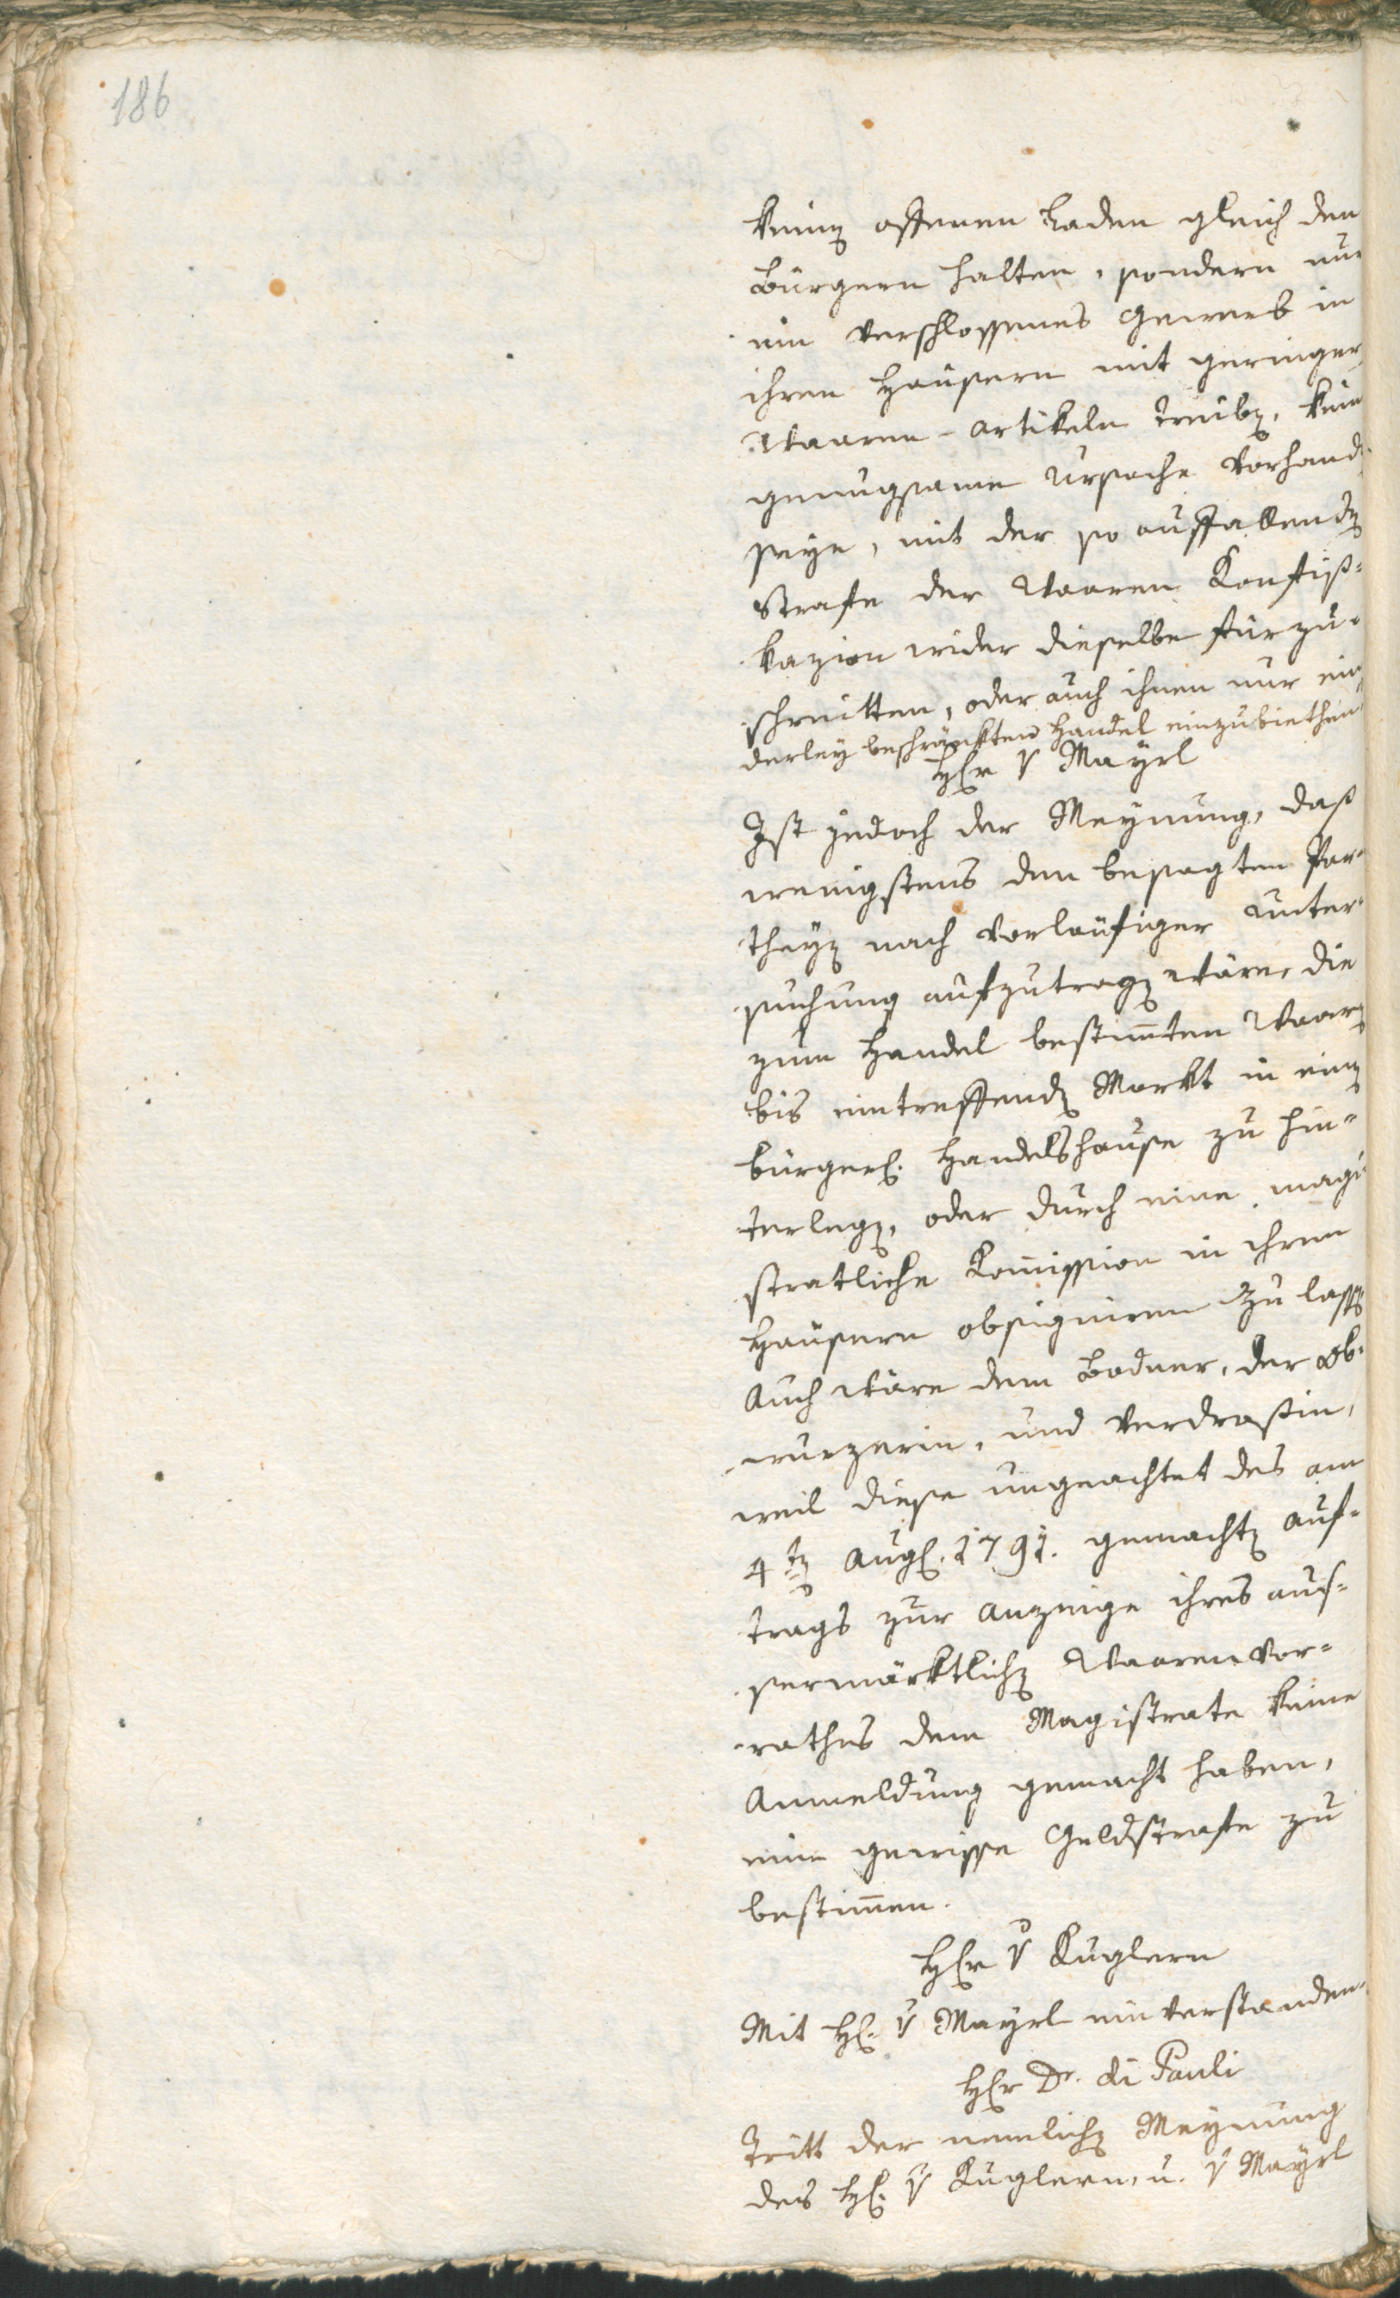 186
keinen offenen Laden gleich den
Bürgern halten, sondern nur
ein verschlossenes Gewerb in
ihren Häusern mit geringen
Waaren-Artikeln treiben, keine
genugsame Ursache vorhanden
seye, mit der so auffallenden
Strafe der Waaren Konfis-
kazion wider dieselbe fürzu-
schreitten, oder auch ihnen nur ein
derley beschränkten Handel einzubiethen
Herr v Mayrl
Ist jedoch der Meynung, daß
wenigstens den besagten Par-
theyen nach vorläufiger Unter-
suchung aufzutragen wäre, die
zum Handel bestimmten Waaren
bis eintreffenden Markt in einem
bürgerl. Handelshause zu hin-
terlegen, oder durch eine magi-
stratliche Kommission in ihren
Häusern obsigniren zu lassen
Auch wäre dem Bodner, der Ob-
wurzerin, und Verdroßin,
weil diese ungeachtet des am
4ten Augl. 1791. gemachten Auf-
trags zur Anzeige ihres aus-
sermärktlichen Waarenvor-
rathes dem Magistrate keine
Anmeldung gemacht haben,
eine gewisse Geldstrafe zu
bestimmen.
Herr v Kuglern
Mit H. v Mayrl einverstanden.
Herr Dr. di Pauli
Tritt der nemlichen Meynung
des H. v Kuglern, u. v Mayrl